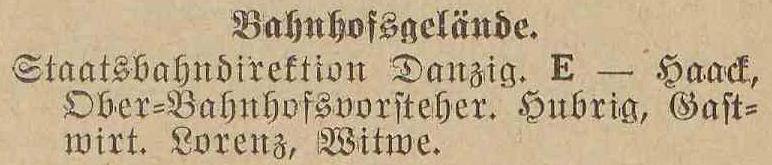 Bahnhofsgelände.
Staatsbahndirektion Danzig. E — Haack,
Ober-Bahnhofsvorsteher. Hubrig, Gast-
wirt. Lorenz, Witwe.